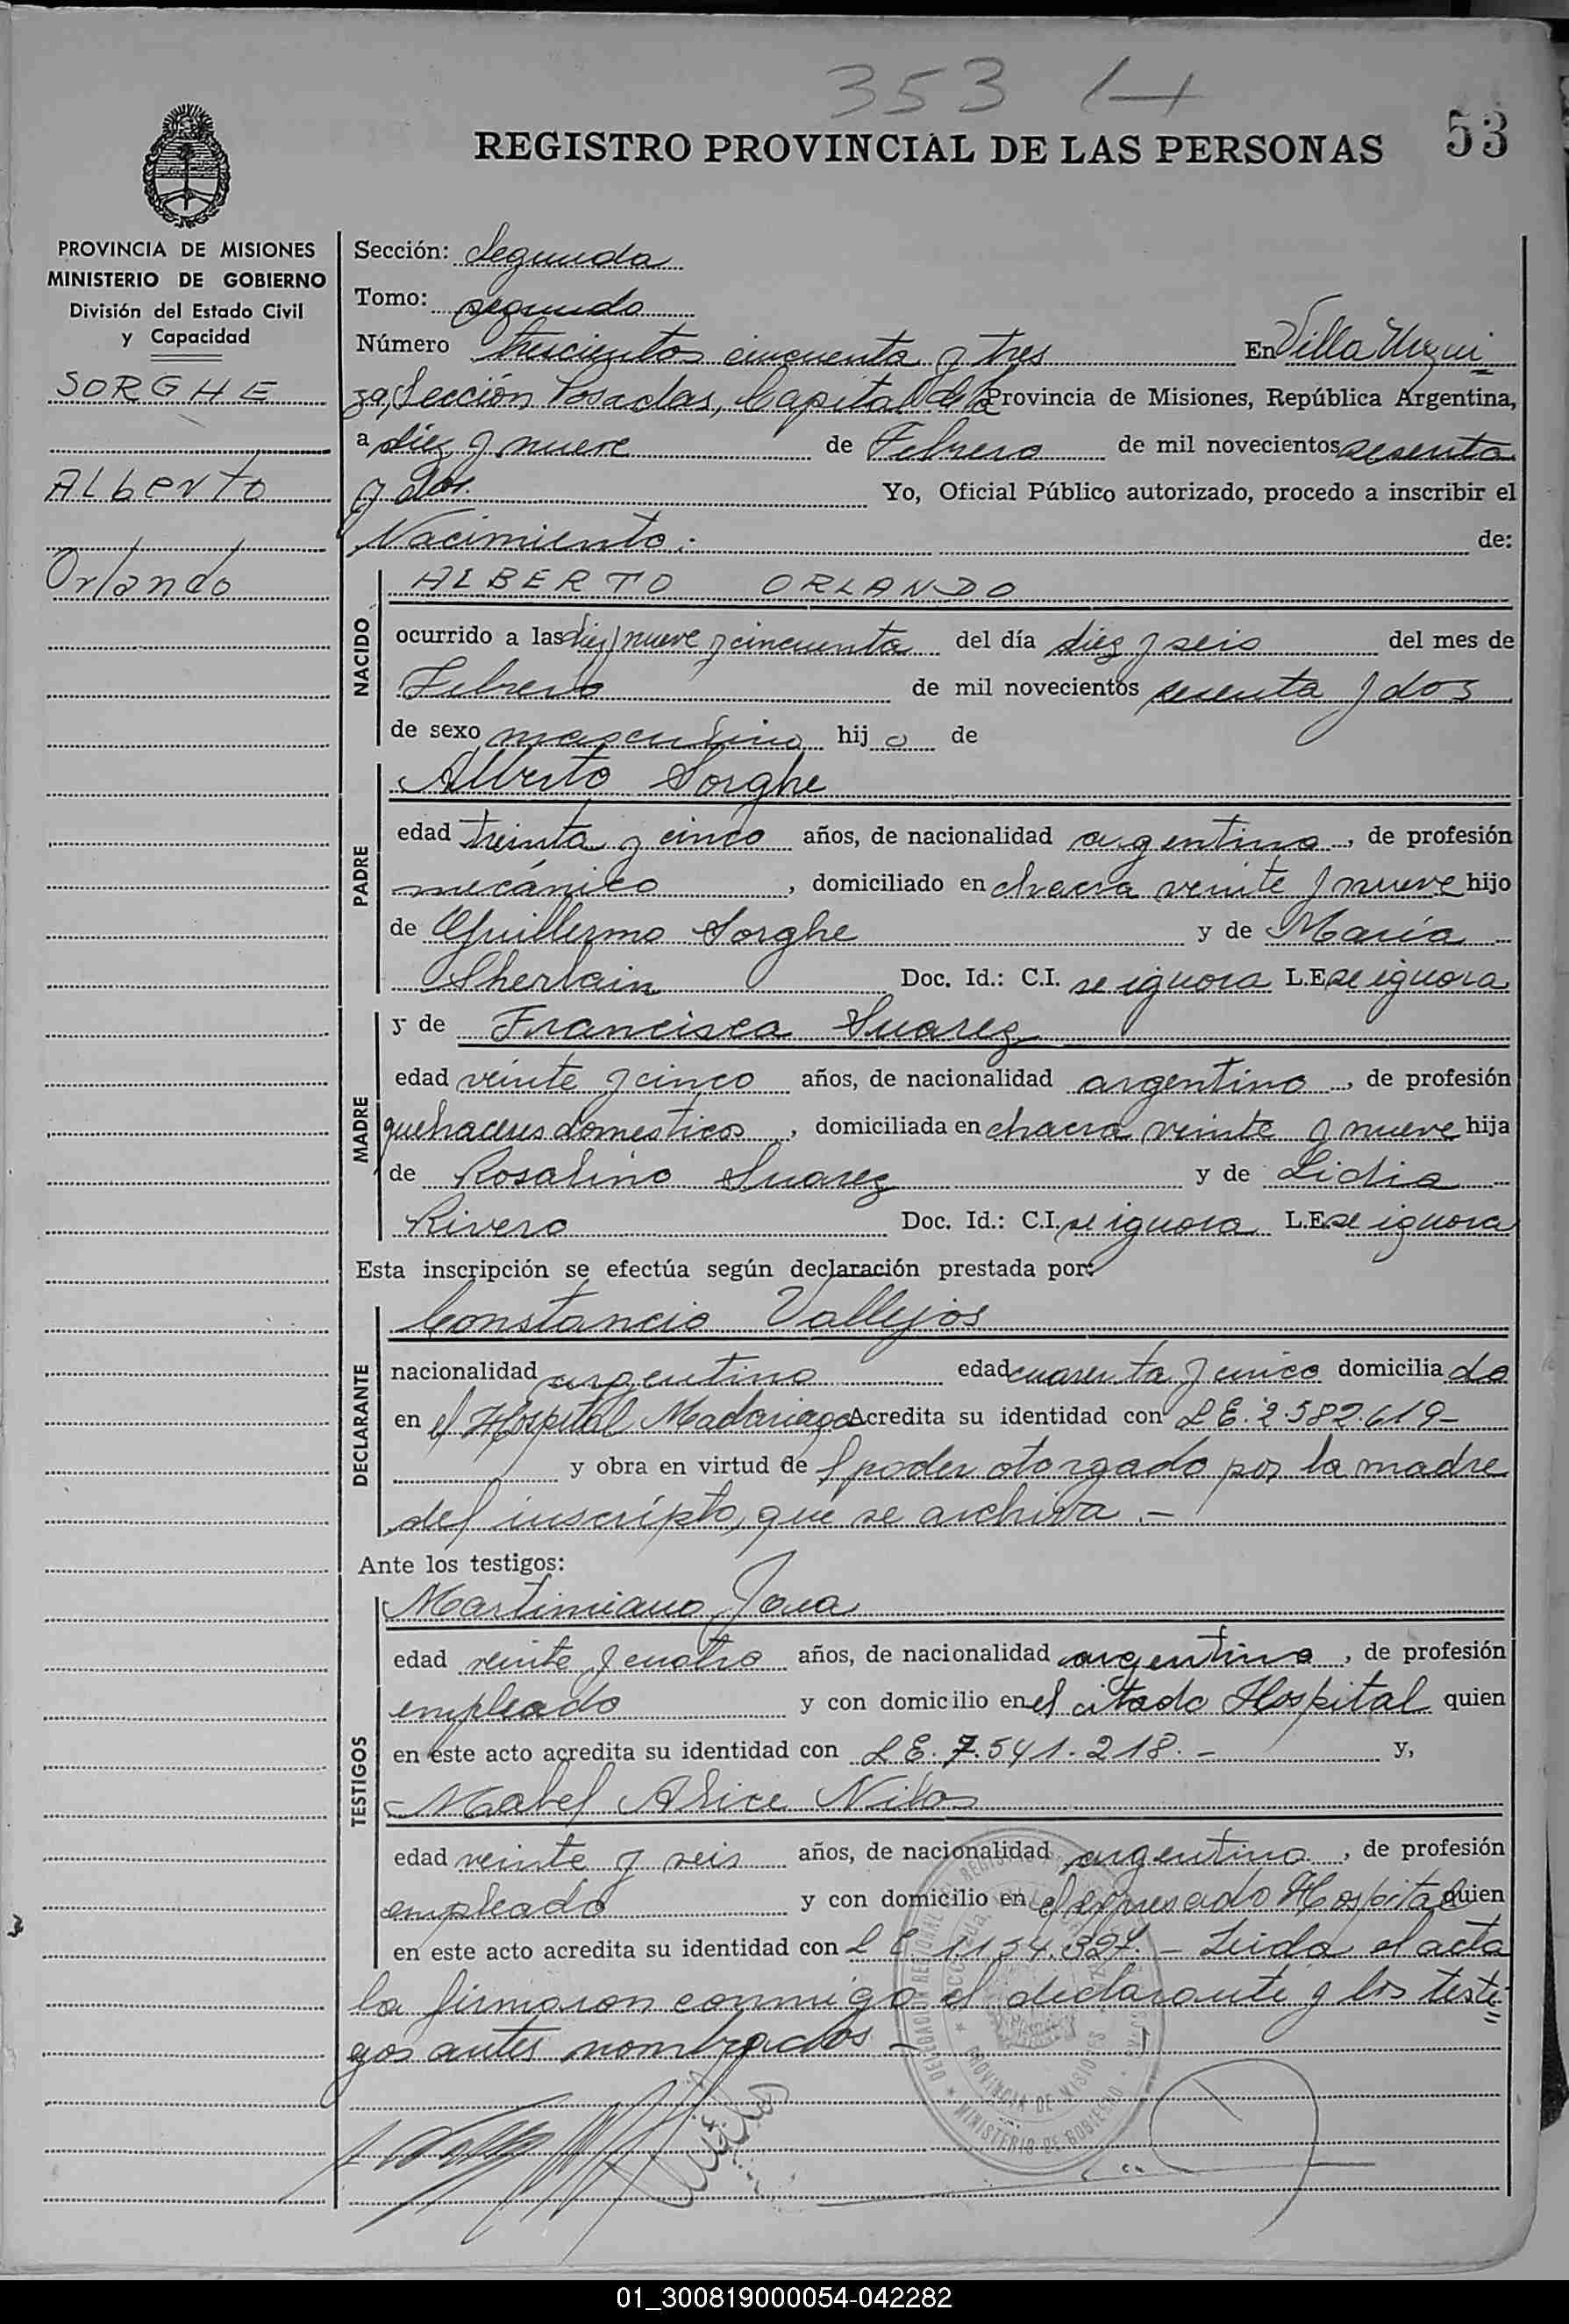 353
REGISTRO PROVINCIAL DE LAS PERSONAS 53
PROVINCIA DE MISIONES
MINISTERIO DE GOBIERNO
División del Estado Civil
y Capacidad
SORGHE
Alberto
Orlando
Sección: Segunda
Tomo: segundo
Número trescientos cincuenta y tres En Villa Urqui
za, Sección Posadas, Capital de la Provincia de Misiones, República Argentina,
a diez y nueve de Febrero de mil novecientos sesenta
y dos. Yo, Oficial Público autorizado, procedo a inscribir el
Nacimiento: de:
NACIDO
ALBERTO ORLANDO
ocurrido a las diez y nueve y cincuenta del día diez y seis del mes de
Febrero de mil novecientos sesenta y dos
de sexo masculino hij o de
PADRE
Alberto Sorghe
edad treinta y cinco años, de nacionalidad argentino, de profesión
mecánico, domiciliado en chacra veinte y nueve hijo
de Guillermo Sorghe y de María
Sherlain Doc. Id.: C.I. se ignora L.E. se ignora
MADRE
y de Francisca Suarez
edad veinte y cinco años, de nacionalidad argentina, de profesión
quehaceres domesticos, domiciliada en chacra veinte y nueve hija
de Rosalino Suarez y de Lidia
Rivero Doc. Id.: C.I. se ignora L.E. se ignora
Esta inscripción se efectúa según declaración prestada por:
DECLARANTE
Constancio Vallejos
nacionalidad argentino edad cuarenta y cinco domicilia do
en el Hospital Madariaga Acredita su identidad con L E. 2.582.619-
y obra en virtud de l poder otorgado por la madre
del inscripto, que se archiva.-
Ante los testigos:
TESTIGOS
Martimiano Jara
edad veinte y cuatro años, de nacionalidad argentino, de profesión
empleado y con domicilio en el citado Hospital quien
en este acto acredita su identidad con L E. 7.541.218.- y,
Mabel Alice
edad veinte y seis años, de nacionalidad argentina, de profesión
empleada y con domicilio en el expresado Hospital quien
en este acto acredita su identidad con L E - Leida el acta
la firmaron conmigo el declarante y los testi
gos antes nombrados -
PROVINCIA DE MISIONES
MINISTERIO DE GOBIERNO
01_300819000054-042282